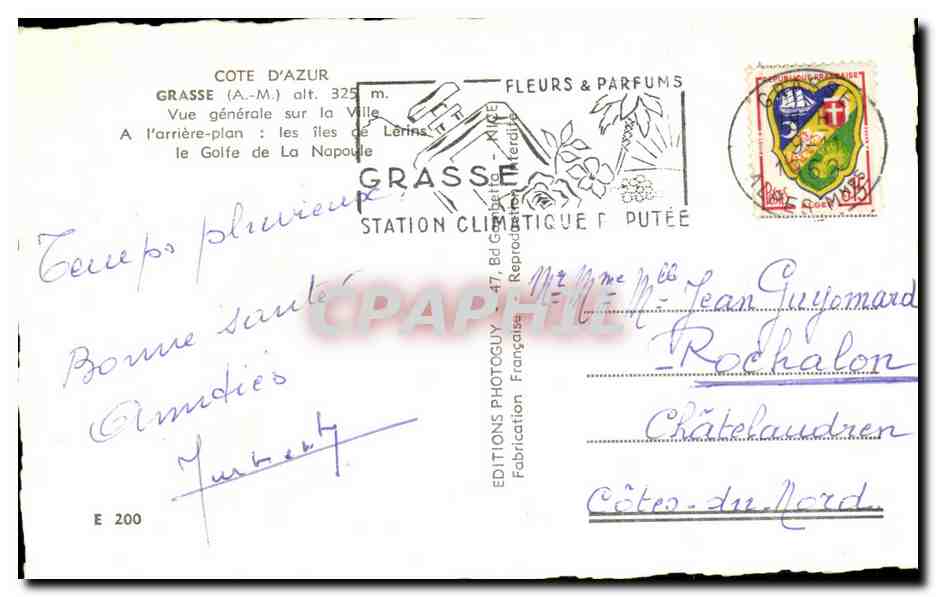 COTE D'AZUR
GRASSE (A.-M.) alt. 325 m.
Vue générale sur la Ville
A l'arrière-plan : les îles de Lérins
le Golfe de La Napoule
Temps pluvieux !
Bonne santé
Amitiés
E 200
EDITIONS PHOTOGUY - 47, Bd Gambetta - NICE
Fabrication Française - Reproduction Interdite
FLEURS & PARFUMS
GRASSE
STATION CLIMATIQUE R PUTÉE
REPUBLIQUE FRANÇAISE
Postes 0,15
ALGER
GRASSE
ALPES MMES
Mr Mme Mlle Jean Guyomard
Rochalon
Châtelaudren
Côtes-du-Nord
CPAPHIL